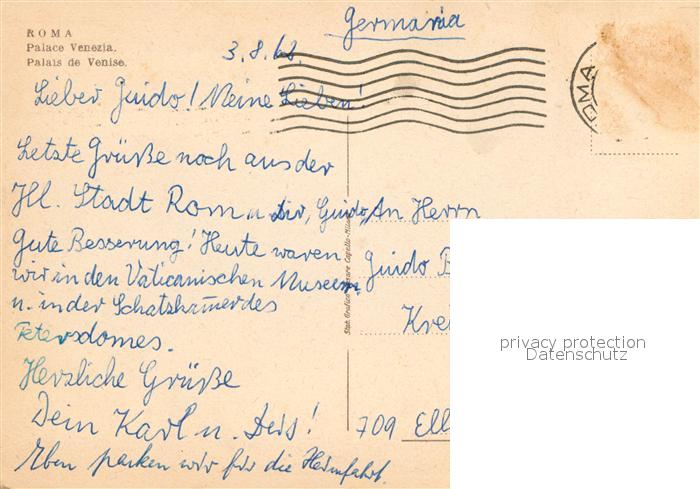 Germania
ROMA
Palace Venezia.
Palais de Venise.
3.8.68.
Lieber Guido! Meine Lieben!
Letzte Grüße noch aus der
Hl. Stadt Rom u. Dir, Guido,
Gute Besserung! Heute waren
wir in den Vaticanischen Museen
u. in der Schatzkammer des
Petersdomes.
Herzliche Grüße
Dein Karl u.
Eben packen wir für die Heimfahrt.
An Herrn
Guido B
Krei
709 Ell
OMA
privacy protection
Datenschutz